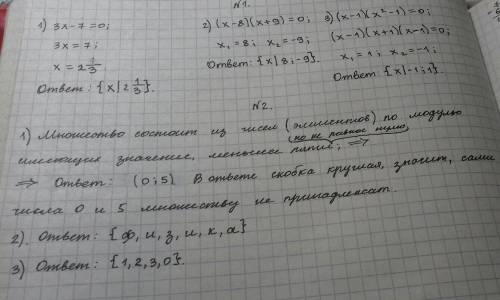 №1.
1) 3x-7=0; 2) (x-8)(x+9)=0; 3) (x-1)(x²-1)=0;
3x=7; x₁=8; x₂=-9; (x-1)(x+1)(x-1)=0;
x=2 1/3 Ответ: {x|8;-9}. x₁=1; x₂=-1;
Ответ: {x|2 1/3}. Ответ: {x|-1;1}
№2.
1) Множество состоит из чисел (элементов) по модулю
(но не равное нулю)
имеющих значение, меньшее пяти; ⇒
⇒ Ответ: (0;5) В ответе скобка круглая, значит, сами
числа 0 и 5 множеству не принадлежат.
2). Ответ: {ф, и, з, и, к, а}
3) Ответ: {1, 2, 3, 0}.